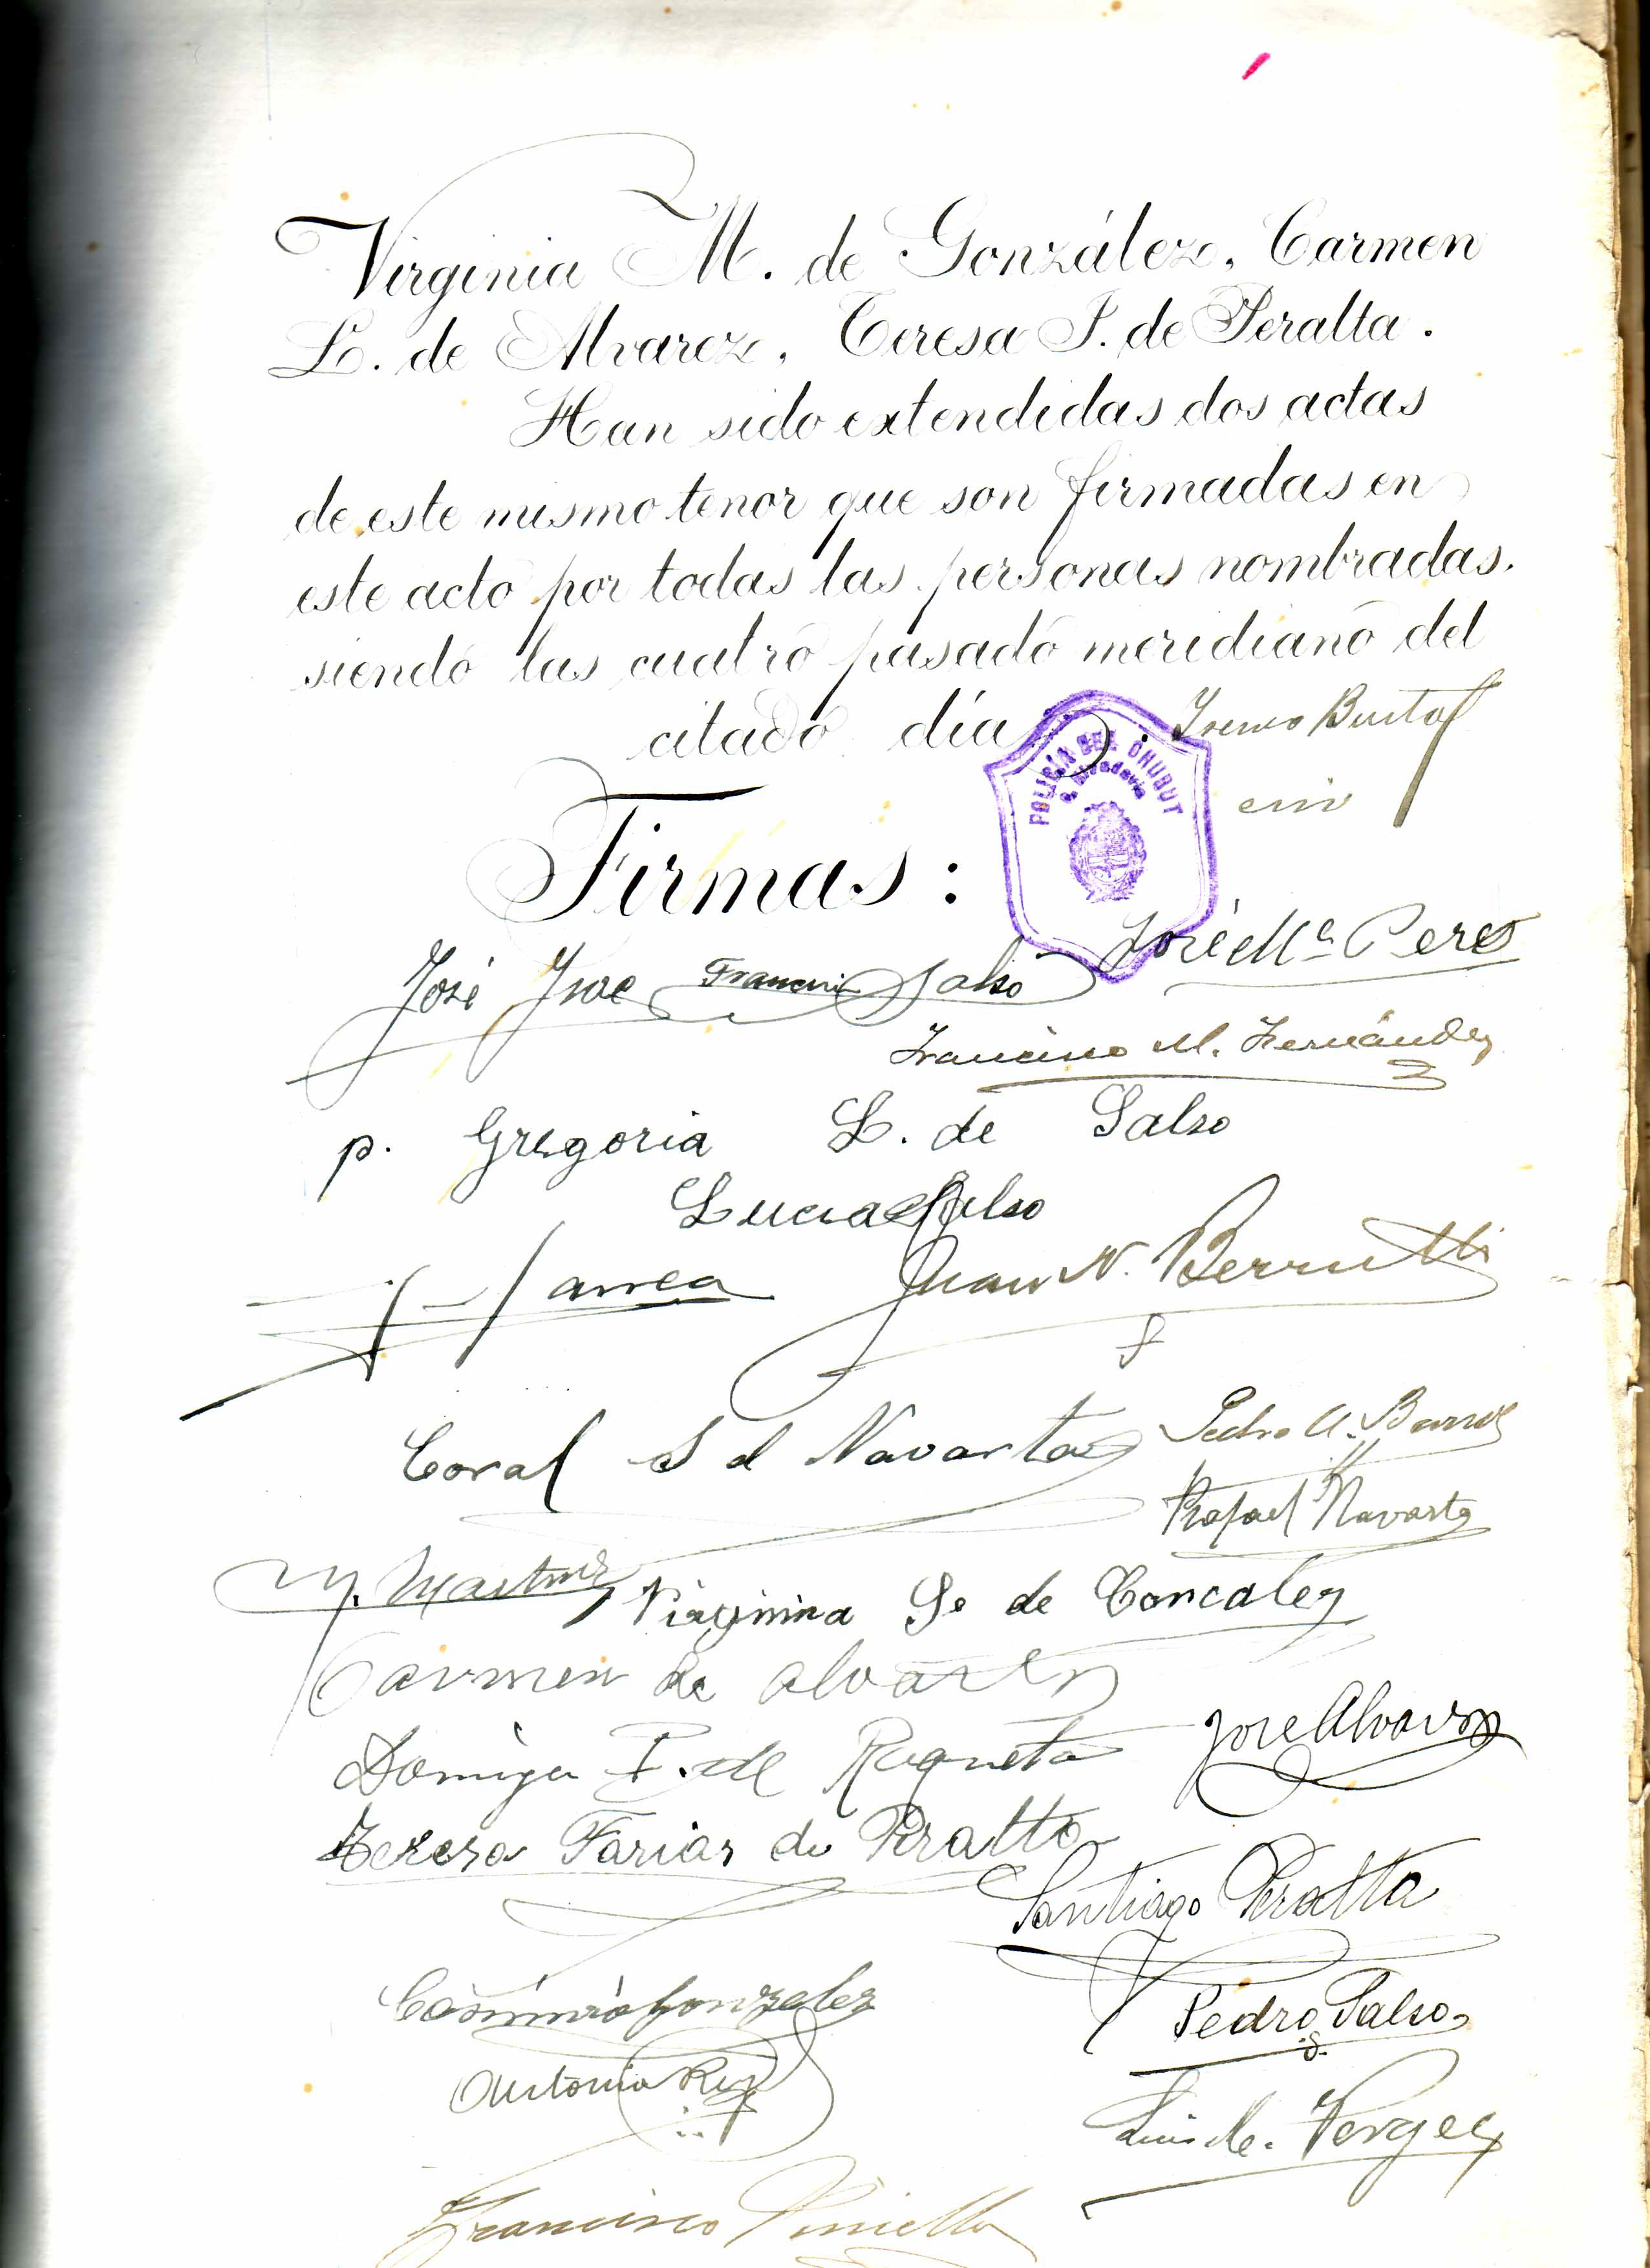 Virginia M. de González, Carmen
L. de Alvarez, Teresa F. de Peralta.
Han sido extendidas dos actas
de este mismo tenor que son firmadas en
este acto por todas las personas nombradas,
siendo las cuatro pasado meridiano del
citado día.
POLICÍA DEL CHUBUT
C. Rivadavia
Firmas:
José Mª Perez
José Salso
Francisco M. Fernández
p. Gregoria L. de Salso
Lucia Salso
Juan N. Berrutti
Coral S d Navarta
Pedro A. Barros
Rafael Navarta
M. Martinez
Virginina de Concalez
Carmen de alvarez
Jose Alvarez
Dominga F. de Roqueta
Teresa Farias de Peralta
Santiago Peralta
Casimiro Gonzalez
Pedro Salso
Antonio
Luis M. Verges
Francisco Piniella